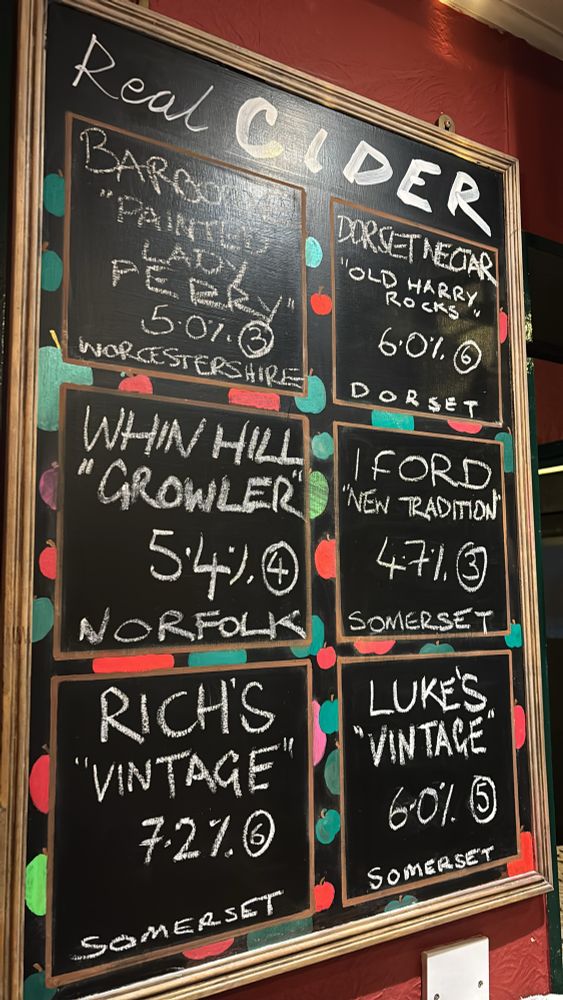 Real CIDER
"PAINTED
LADY
PERRY"
5.0% ③
WORCESTERSHIRE
DORSET NECTAR
"OLD HARRY
ROCKS"
6.0% ⑥
DORSET
WHIN HILL
"GROWLER"
5.4% ④
NORFOLK
IFORD
"NEW TRADITION"
4.7% ③
SOMERSET
RICH'S
"VINTAGE"
7.2% ⑥
SOMERSET
LUKE'S
"VINTAGE"
6.0% ⑤
SOMERSET